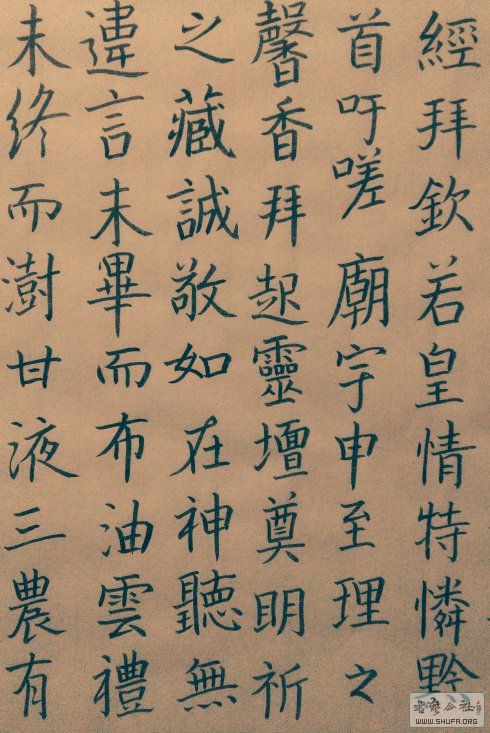 經拜欽若皇情特憐黔
首吁嗟廟宇申至理之
馨香拜起靈壇奠明祈
之藏誠敬如在神聽無
違言未畢而布油雲禮
未終而澍甘液三農有
WWW.SHUFA.ORG